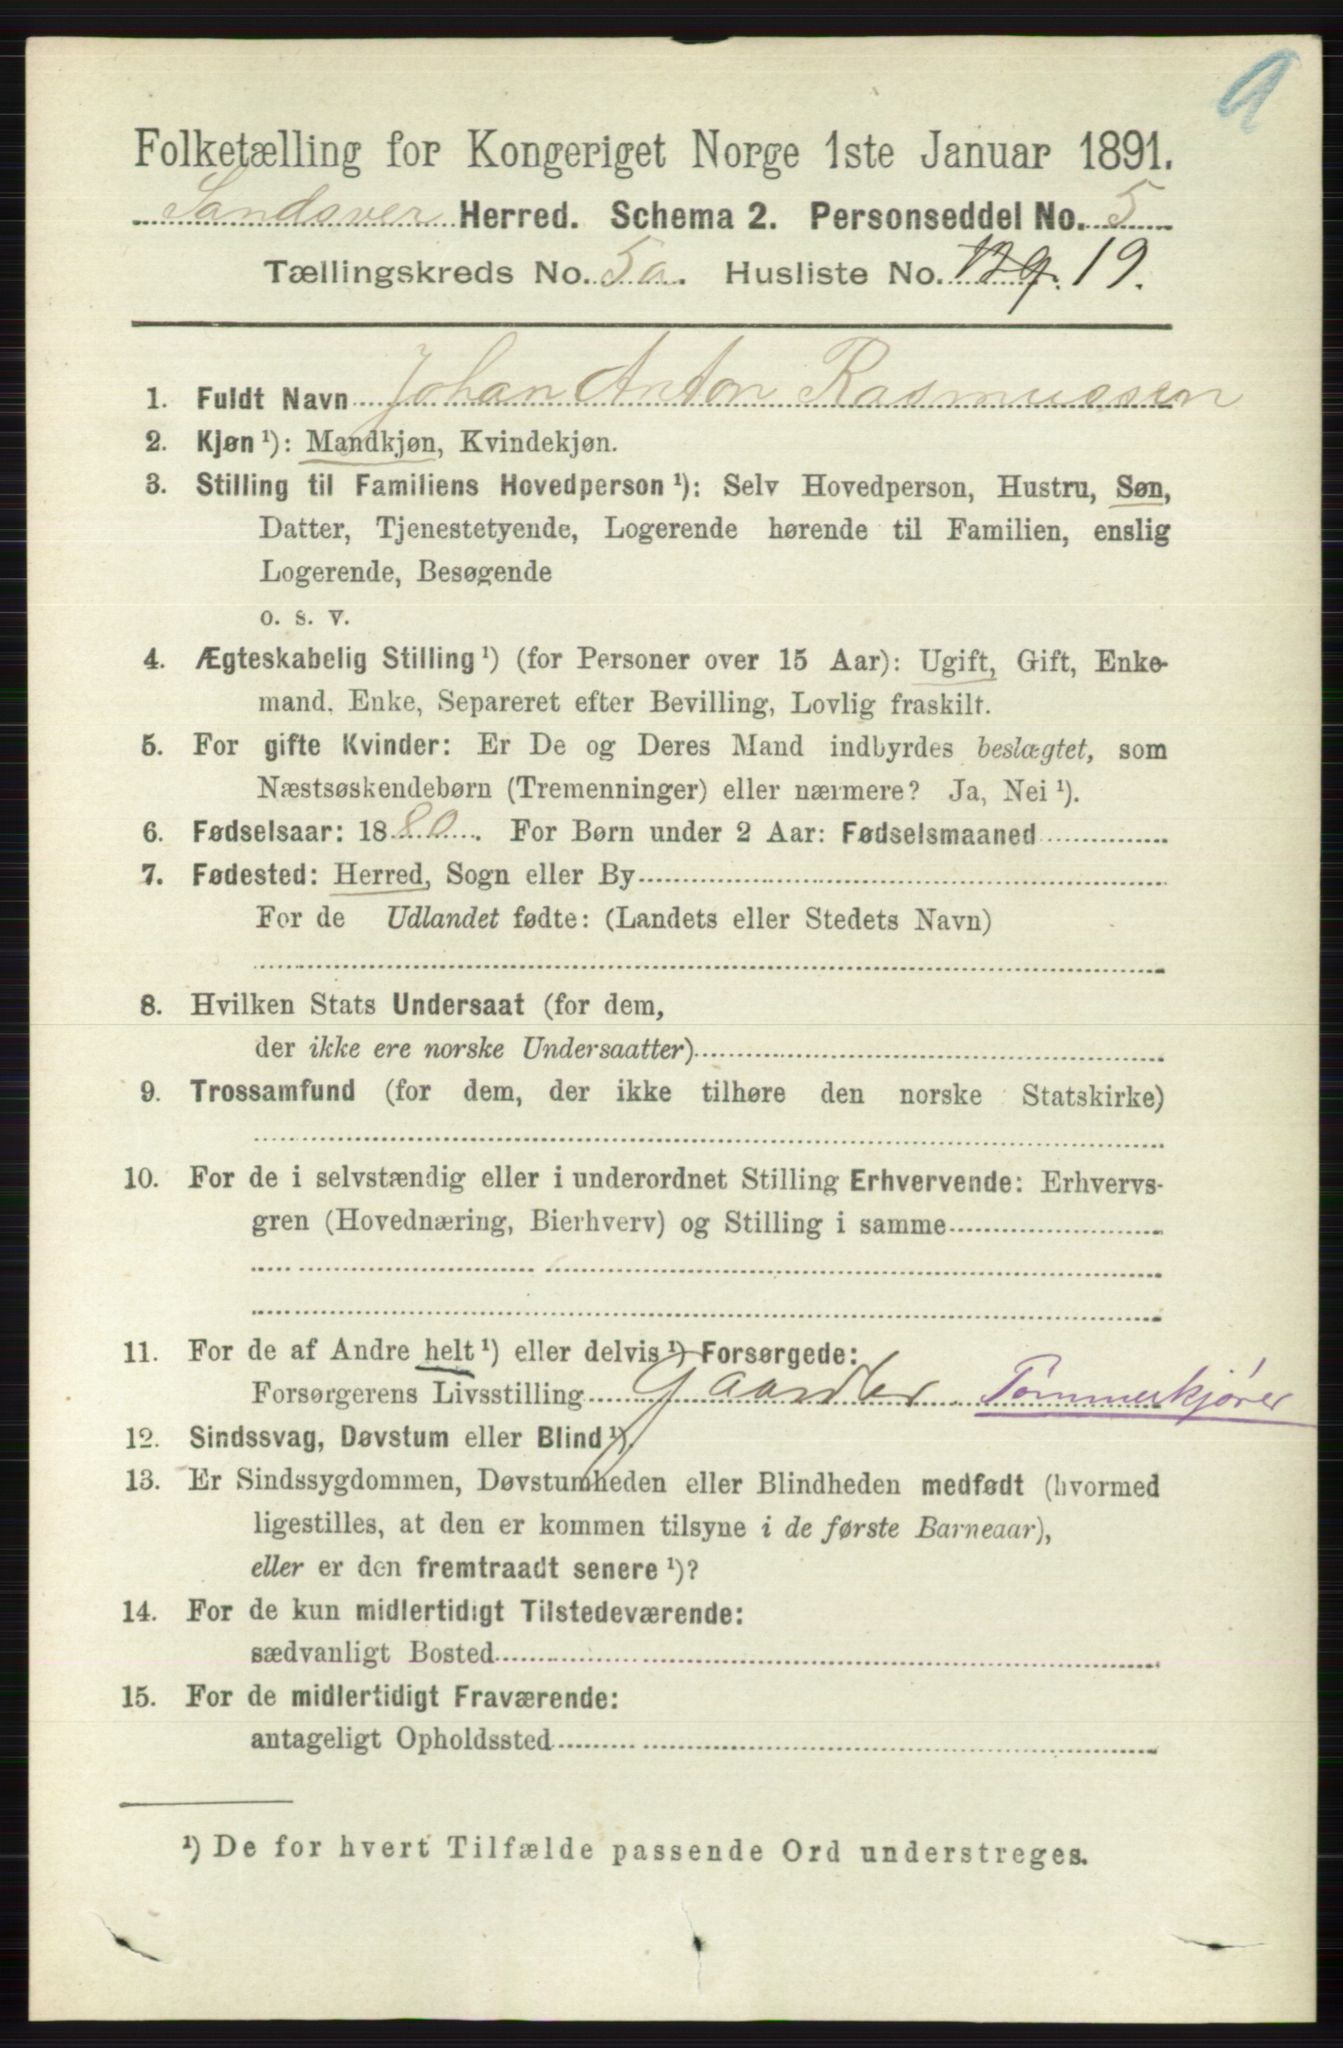 9
Folketælling for Kongeriget Norge 1ste Januar 1891.
Sandsver Herred. Schema 2. Personseddel No. 5
Tællingskreds No. 5a. Husliste No. 19.
1. Fuldt Navn Johan Anton Rasmussen
2. Kjøn ¹): Mandkjøn, Kvindekjøn.
3. Stilling til Familiens Hovedperson ¹): Selv Hovedperson, Hustru, Søn,
Datter, Tjenestetyende, Logerende hørende til Familien, enslig
Logerende, Besøgende
o. s. v.
4. Ægteskabelig Stilling ¹) (for Personer over 15 Aar): Ugift, Gift, Enke-
mand, Enke, Separeret efter Bevilling, Lovlig fraskilt.
5. For gifte Kvinder: Er De og Deres Mand indbyrdes beslægtet, som
Næstsøskendebørn (Tremenninger) eller nærmere? Ja, Nei ¹).
6. Fødselsaar: 1880. For Børn under 2 Aar: Fødselsmaaned
7. Fødested: Herred, Sogn eller By
For de Udlandet fødte: (Landets eller Stedets Navn)
8. Hvilken Stats Undersaat (for dem,
der ikke ere norske Undersaatter)
9. Trossamfund (for dem, der ikke tilhøre den norske Statskirke)
10. For de i selvstændig eller i underordnet Stilling Erhvervende: Erhvervs-
gren (Hovednæring, Bierhverv) og Stilling i samme
11. For de af Andre helt ¹) eller delvis ¹) Forsørgede:
Forsørgerens Livsstilling Tømmerkjører
12. Sindssvag, Døvstum eller Blind ¹).
13. Er Sindssygdommen, Døvstumheden eller Blindheden medfødt (hvormed
ligestilles, at den er kommen tilsyne i de første Barneaar),
eller er den fremtraadt senere ¹)?
14. For de kun midlertidigt Tilstedeværende:
sædvanligt Bosted
15. For de midlertidigt Fraværende:
antageligt Opholdssted
¹) De for hvert Tilfælde passende Ord understreges.